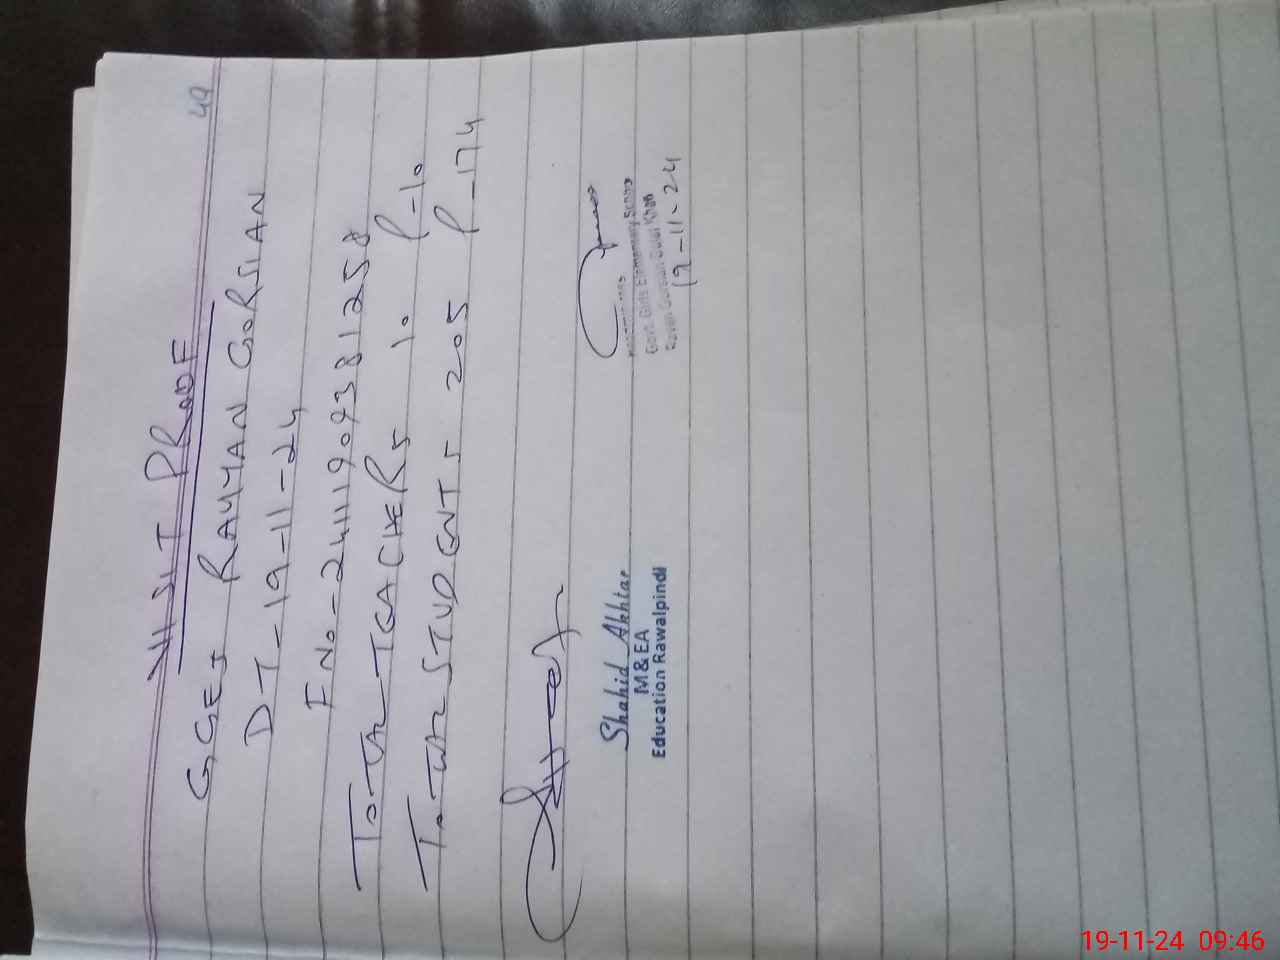 49
VISIT PROOF
GGES RAYYAN GORSIAN
DT-19-11-24
F No-2411190938 1258
TOTAL TEACHERS 10 P-10
TOTAL STUDENTS 205 P-174
Shahid Akhtar
M & EA
Education Rawalpindi
Govt. Girls Elementary School
Gujar Khan
19-11-24
19-11-24 09:46